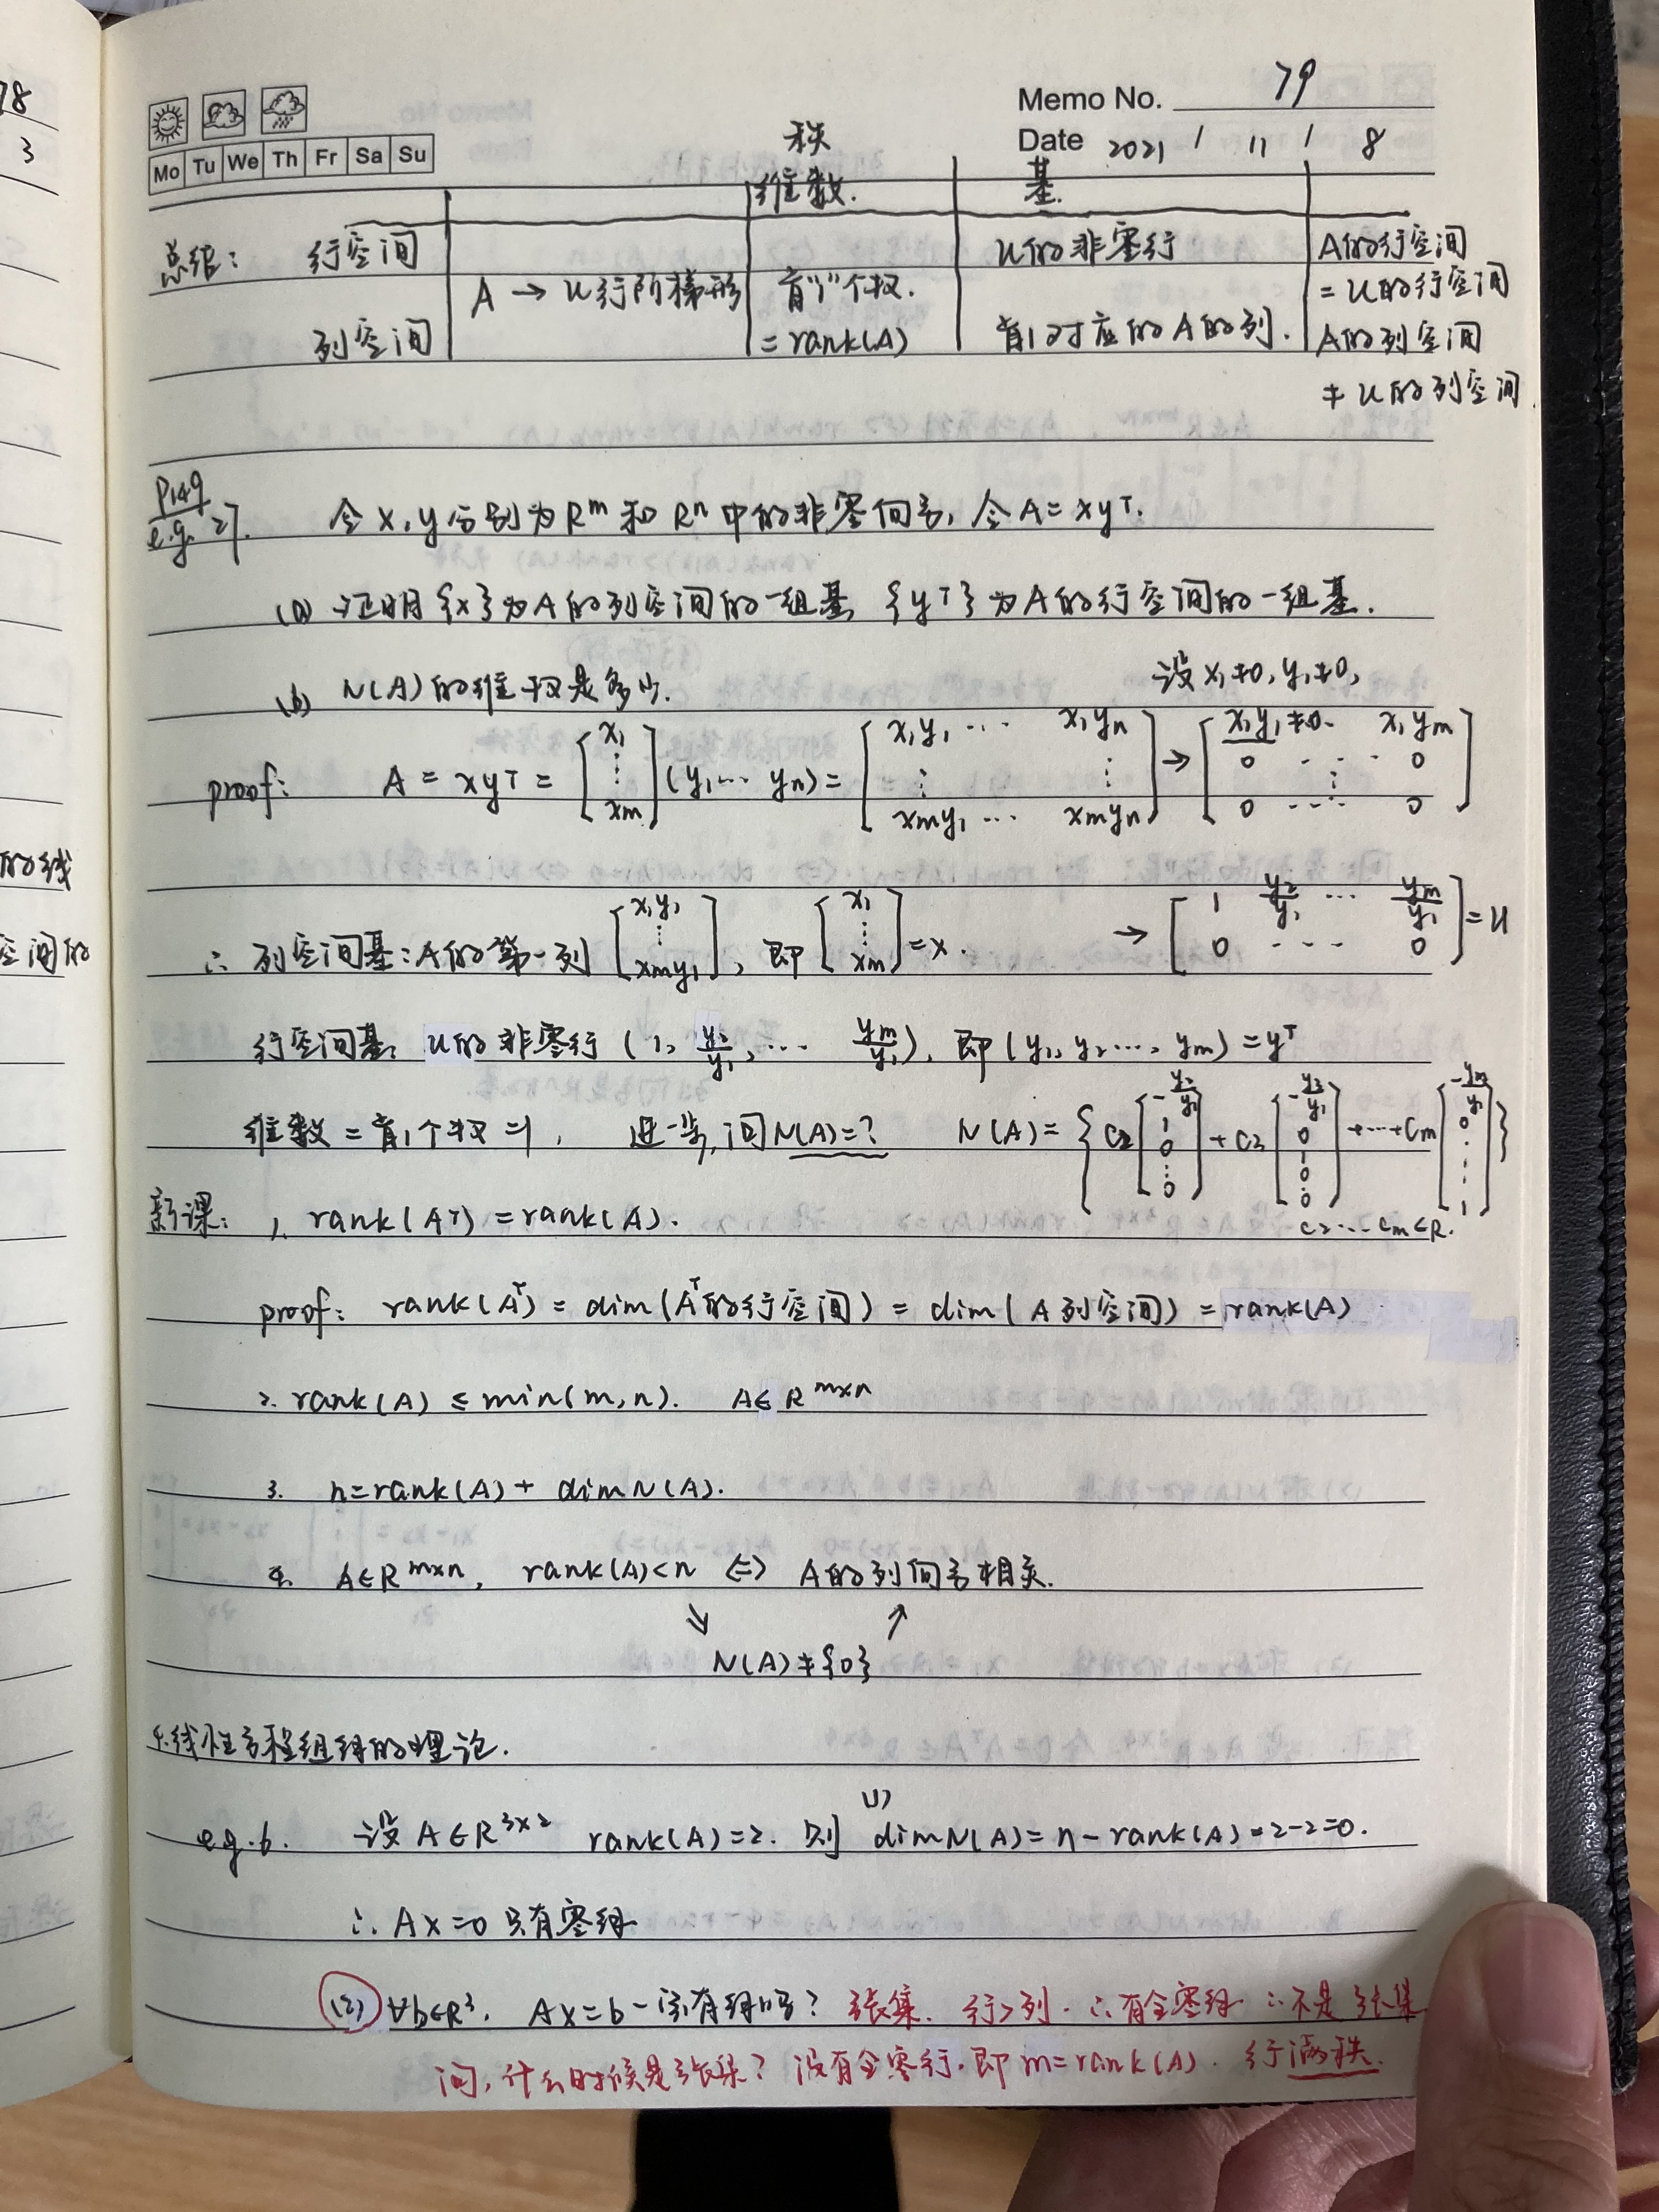 78
3
的线
空间的
Memo No. 79
Date 2021 / 11 / 8
Mo Tu We Th Fr Sa Su
秩
维数. 基.
总结: 行空间 U的非零行 A的行空间
A → U行阶梯形 首"1"个权. = U的行空间
列空间 = rank(A) 首1对应的A的列. A的列空间
≠ U的列空间
P149
e.g. 27. 令 x, y 分别为 Rᵐ 和 Rⁿ 中的非零向量, 令 A = xyᵀ.
(a) 证明 {x} 为 A 的列空间的一组基, {yᵀ} 为 A 的行空间的一组基.
(b) N(A) 的维权是多少. 设 x₁≠0, y₁≠0,
proof: A = xyᵀ = [x₁ ⋮ xm] (y₁ ⋯ yn) = [x₁y₁ ⋯ x₁yn ⋮ ⋮ xmy₁ ⋯ xmyn] → [x₁y₁≠0 x₁ym 0 ⋯ 0 ⋮ 0 ⋯ 0]
∴ 列空间基: A的第一列 [x₁y₁ ⋮ xmy₁], 即 [x₁ ⋮ xm] = x. → [1 y₂/y₁ ⋯ ym/y₁ 0 ⋯ 0] = U
行空间基: U的非零行 (1, y₂/y₁, ⋯ ym/y₁), 即 (y₁, y₂ ⋯, ym) = yᵀ
维数 = 首1个权 = 1, 进一步, 问 N(A) = ? N(A) = { c₂ [-y₂/y₁ 1 0 ⋮ 0] + c₃ [-y₃/y₁ 0 1 0 ⋮ 0] + ⋯ + cm [-ym/y₁ 0 ⋮ 1] }
c₂ ⋯ cm ∈ R.
新课: 1. rank(Aᵀ) = rank(A).
proof: rank(Aᵀ) = dim(Aᵀ的行空间) = dim(A列空间) = rank(A)
2. rank(A) ≤ min(m, n). A ∈ R^{m×n}
3. n = rank(A) + dim N(A).
4. A ∈ R^{m×n}, rank(A) < n ⇔ A的列向量相关.
↘ ↗
N(A) ≠ {0}
4. 线性方程组解的理论.
(1)
e.g. 6. 设 A ∈ R^{3×2} rank(A) = 2. 则 dim N(A) = n - rank(A) = 2-2 = 0.
∴ Ax = 0 只有零解
(2) ∀b∈R³, Ax = b 一定有解吗? 张集. 行>列. ∴有全零解 ∴不是张集
问, 什么时候是张集? 没有全零行. 即 m = rank(A). 行满秩.